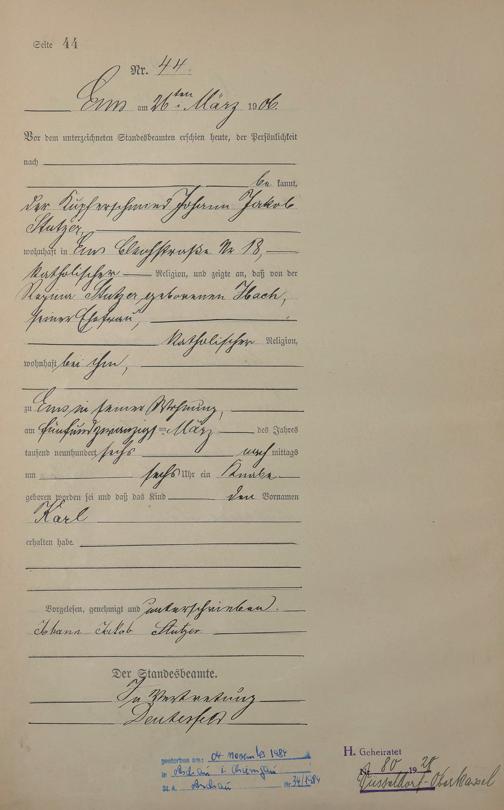 Seite 44
Nr. 44.
Ems am 26ten März 1906.
Vor dem unterzeichneten Standesbeamten erschien heute, der Persönlichkeit
nach
be kannt,
der Kupferschmied Johann Jakob
Stutzer,
wohnhaft in Ems Bleichstraße Nr 18,
katholischer Religion, und zeigte an, daß von der
Regina Stutzer geborenen Ibach,
seiner Ehefrau,
katholischer Religion,
wohnhaft bei ihm,
zu Ems in seiner Wohnung,
am fünfundzwanzigsten März des Jahres
tausend neunhundert sechs nach mittags
um sechs Uhr ein Knabe
geboren worden sei und daß das Kind den Vornamen
Karl
erhalten habe.
Vorgelesen, genehmigt und unterschrieben.
Johann Jakob Stutzer
Der Standesbeamte.
In Vertretung
gestorben am: 04 November 1984
in Aschau i. Chiemgau
St. A. Aschau Nr. 34/1984
H. Geheiratet
Nr 80 1928
Düsseldorf-Oberkassel